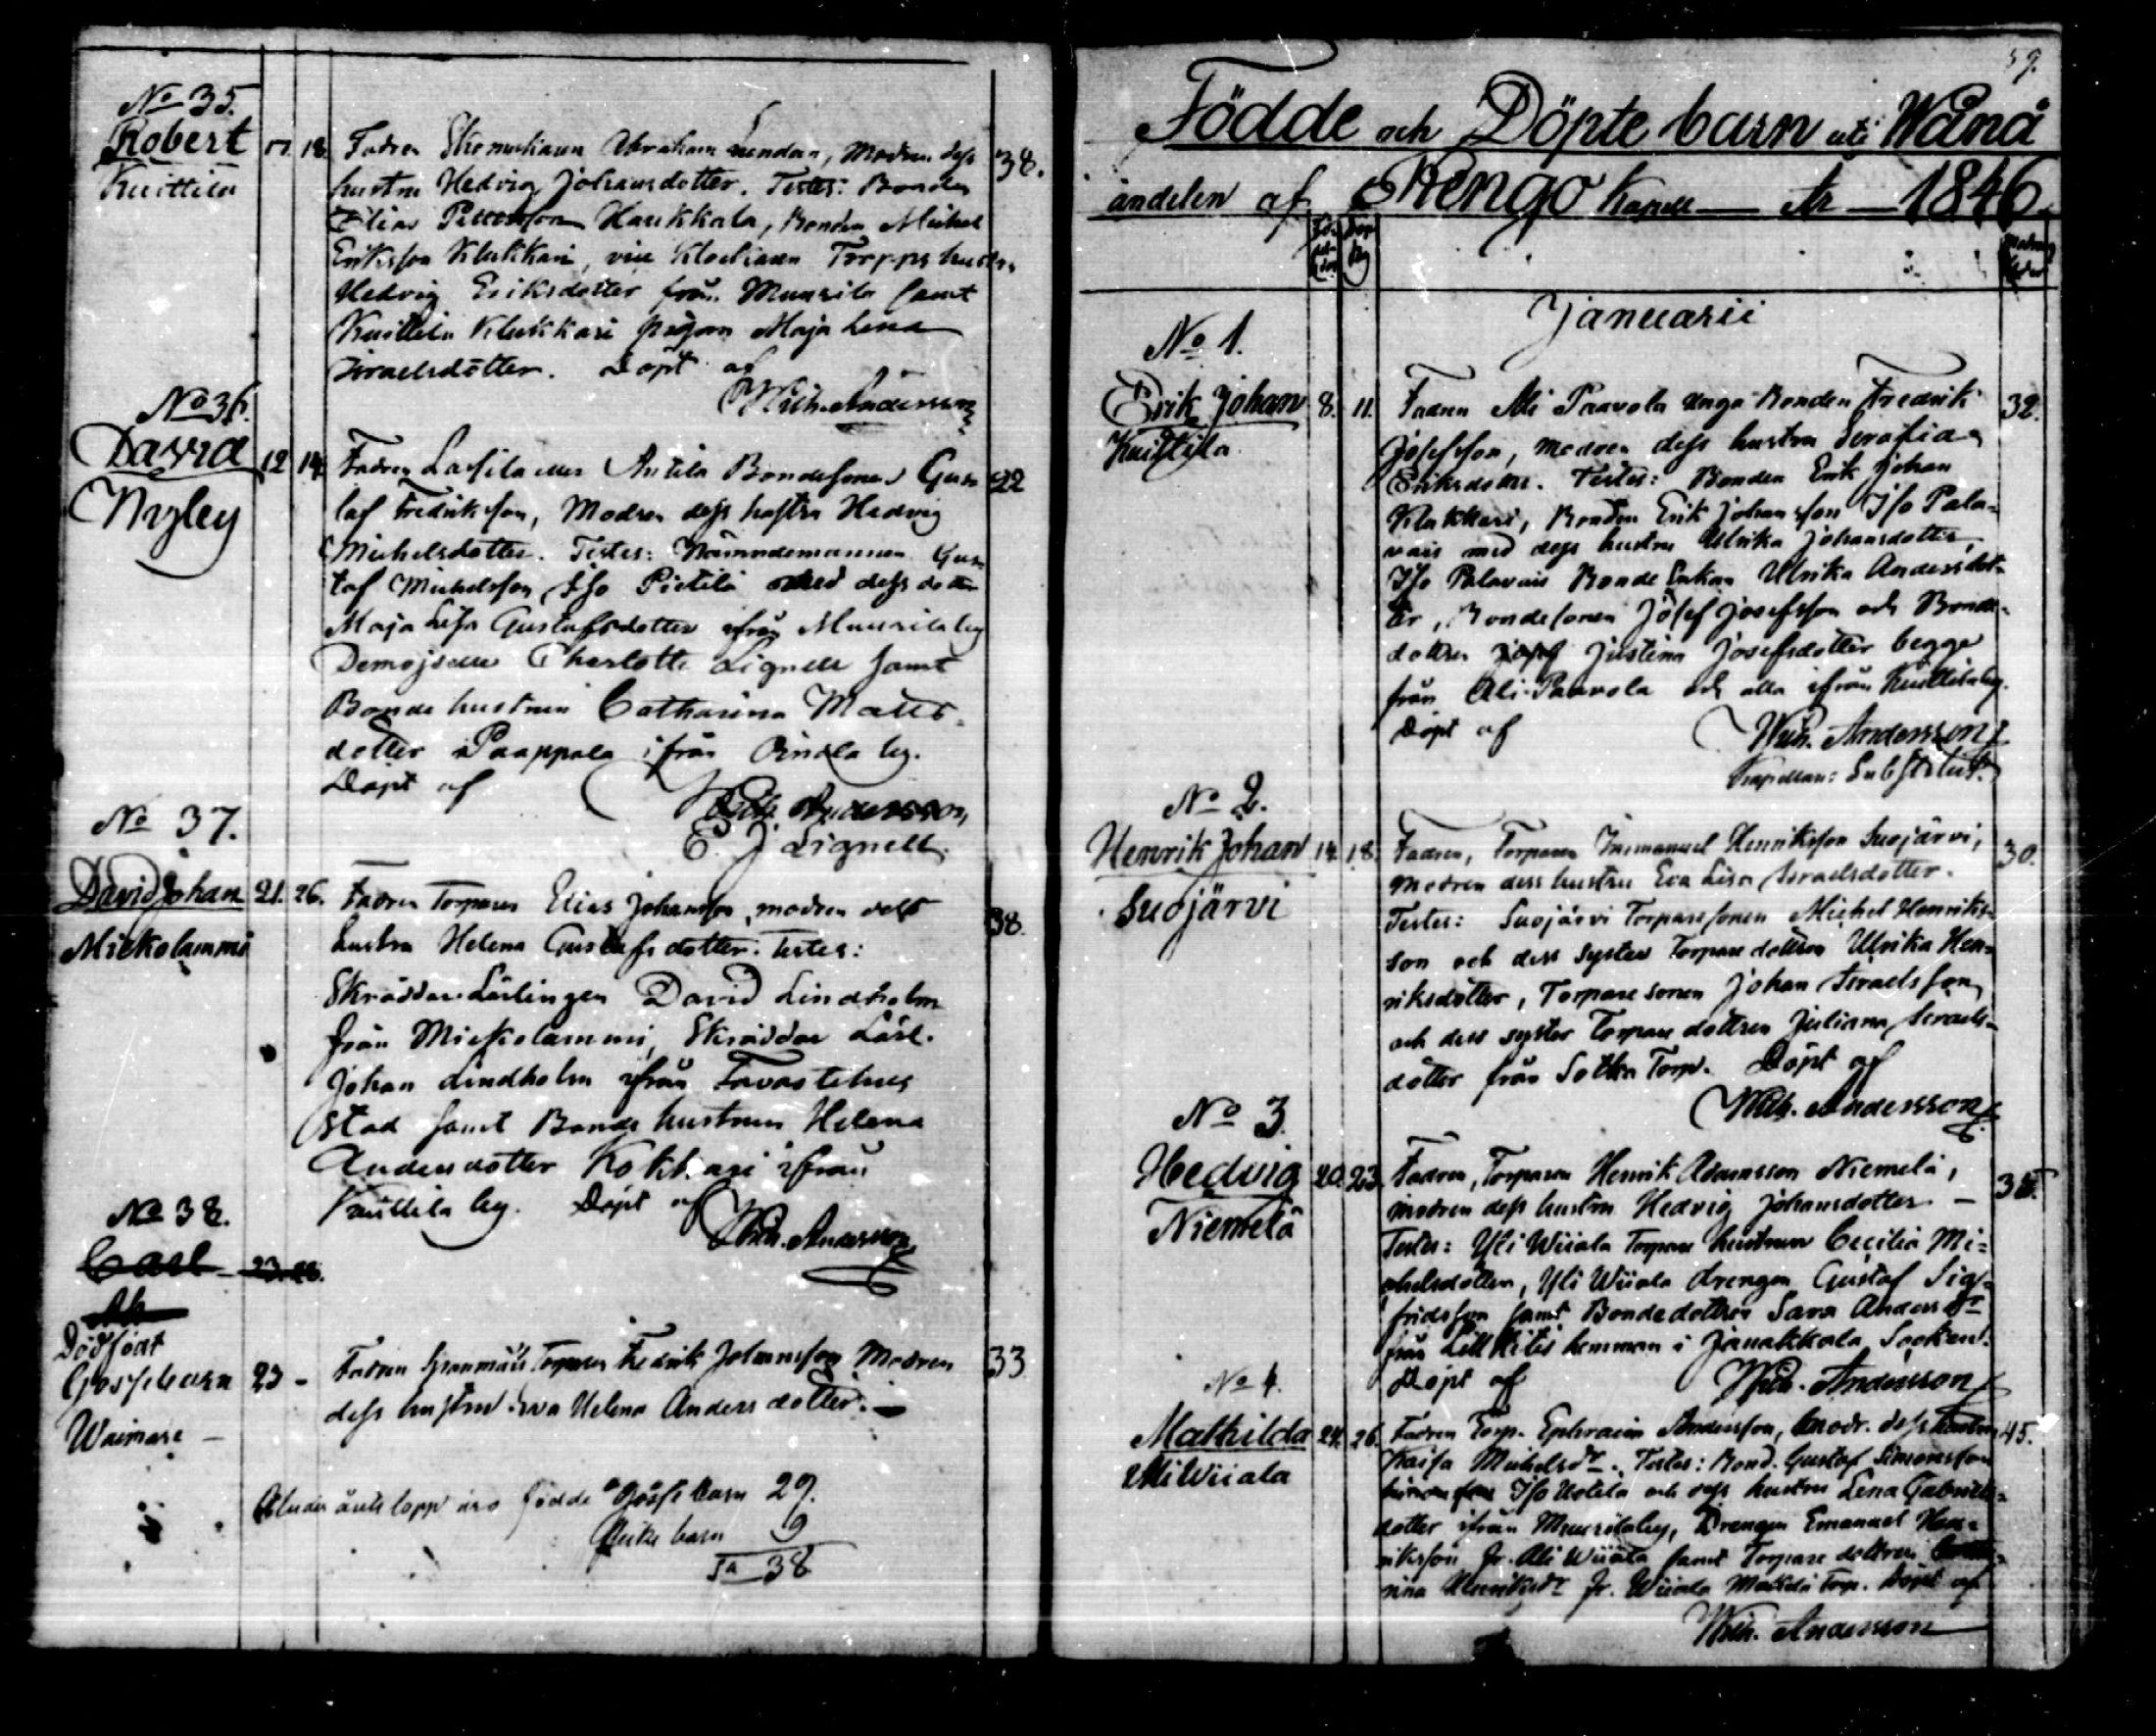 No 35.
Robert 17. 18. Fadren Skomakaren Abraham Lindon, Modren dess 38.
Kuittila hustru Hedvig Johansdotter. Testes: Bonden
Elias Petterson Haukkala, Bonden Michel
Eriksson Klukkari, Torpps hustru
Hedvig Eriksdotter från Muurila samt
Kuittila Klukkari pigan Maja Lena
Israelsdotter. Döpt af
Wilh. Andersson
No 36.
David 12 14 Fadren Antila Bondesonen Gus 22
Nyby taf Fredriksson, Modren dess hustru Hedvig
Michelsdotter. Testes: Nämndemannen Gus
taf Michelsson Iso Pietilä med dess dotter
Maja Lisa Gustafsdotter ifrån Muurila by
Demoiselle Charlotte Lignell samt
Bonde hustrun Catharina Matts
dotter Paappala ifrån Oinala by.
Döpt af Wilh. Andersson,
E. J. Lignell.
No 37.
David Johan 21. 26. Fadren Torparen Elias Johansson, modren dess 38.
Mickolammi hustru Helena Gustafsdotter. Testes:
Skräddar Lärlingen David Lindholm
från Mickolammi, Skräddar Lärl.
Johan Lindholm ifrån Tavastehus
Stad samt Bonde hustrun Helena
Andersdotter Kokkari ifrån
Kuittila by. Döpt af Wilh. Andersson
No 38.
Carl 23. 28.
Ak
Dödfödt
Gossebarn 23 - Fadren Torparen Fredrik Johansson Modren 33
Waimare - dess hustru Eva Helena Andersdotter. -
under årets lopp äro födde Gosse barn 29.
Flicke barn 9
Sa 38
59.
Födde och Döpte barn uti Wånå
andelen af Rengo Kapell År 1846.
Januarii
No 1.
Erik Johan 8. 11. Fadren Ali Paavola unga Bonden Fredrik 32.
Kuittila Josefsson, modren dess hustru Serafia
Eriksdotter. Testes: Bonden Erik Johan
Klukkari, Bonden Erik Johansson Iso Pala-
vais med dess hustru Ulrika Johansdotter,
Iso Palavais Bonde Enkan Ulrika Andersdot-
ter, Bondesonen Josef Josefsson och Bonde-
dottren Josef Justina Josefsdotter begge
från Ali-Paavola och alla ifrån Kuittila by.
Döpt af Wilh. Andersson
Kapellans: Substitut.
No 2.
Henrik Johan 14. 18. Fadren, Torparen Immanuel Henriksson Suojärvi, 30.
Suojärvi modren dess hustru Eva Lisa Israelsdotter.
Testes: Suojärvi Torparesonen Michel Henriks-
son och dess syster Torpare dottren Ulrika Hen-
riksdotter, Torpare sonen Johan Israelsson
och dess syster Torpare dottren Juliana Israels-
dotter från Sotka Torp. Döpt af
Wilh. Andersson
No 3.
Hedvig 20. 23. Fadren, Torparen Henrik Adamsson Niemelä,
Niemelä modren dess hustru Hedvig Johansdotter -
Testes: Yli Wiiala Torpare hustrun Cecilia Mi-
chelsdotter, Yli Wiiala drengen Gustaf Sig-
fridsson samt Bondedottren Sara Anders dr
från hemman i Janakkala Socken.
Döpt af Wilh. Andersson
No 4.
Mathilda 24. 26. Fadren Torp. Ephraim Andersson, modr. dess hustru 45.
Ali Wiiala Kaisa Michelsdr. Testes: Bond. Gustaf Simonsson
Iso Uotila och dess hustru Lena Gabriels-
dotter ifrån Muurila by, Drengen Emanuel Hen-
riksson fr. Ali Wiiala samt Torpare dottren
Henriksdr fr. Wiiala Torp. Döpt af
Wilh. Andersson